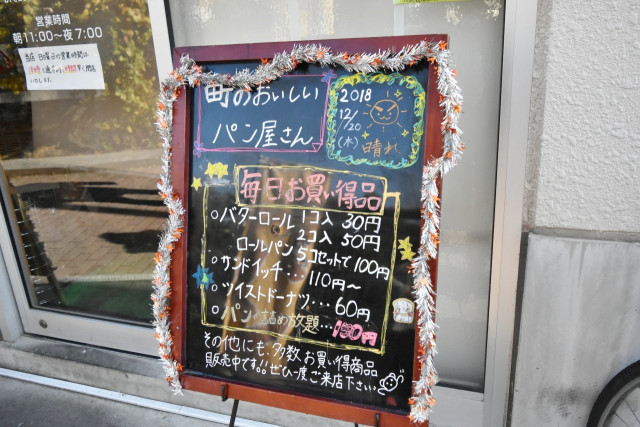 営業時間
朝11:00〜夜7:00
町のおいしい
パン屋さん
2018
12/20
(木)
晴れ
毎日お買い得品
○バターロール 1コ入 30円
2コ入 50円
ロールパン 5コセットで100円
○サンドイッチ・・・110円〜
○ツイストドーナツ・・・60円
○パン詰め放題・・・
その他にも、多数お買い得商品
販売中です。。ぜひ一度ご来店下さい